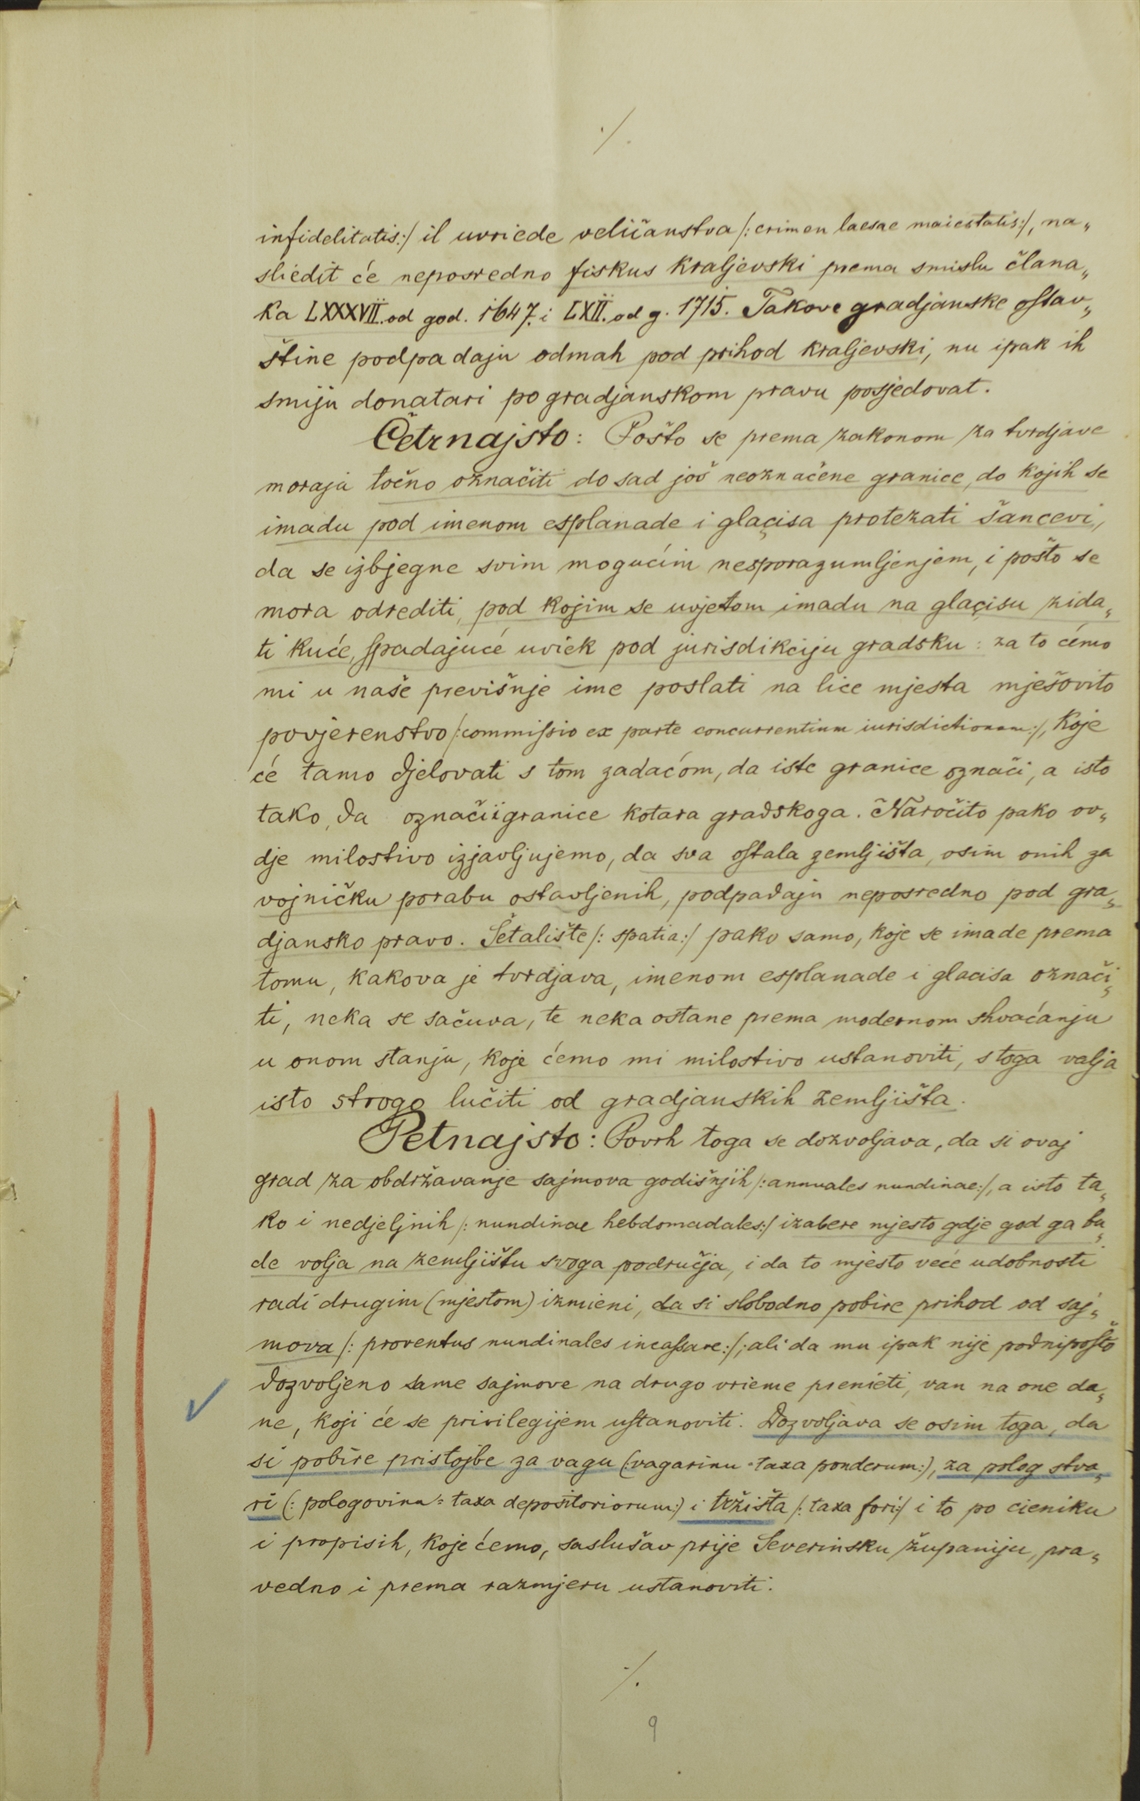 ./.
infidelitatis:/ il uvriede veličanstva /: crimen laesae maiestatis:/, na„
sliedit će neposredno fiskus kraljevski prema smislu člana„
ka LXXXVII. od god. 1647. i LXII. od g. 1715. Takove gradjanske ostav„
štine podpadaju odmah pod prihod kraljevski, nu ipak ih
smiju donatari po gradjanskom pravu posjedovat.
Četrnajsto: Pošto se prema zakonom za tvrdjave
moraju točno označiti do sad još neoznačene granice, do kojih se
imadu pod imenom esplanade i glacisa protezati šancevi,
da se izbjegne svim mogućim nesporazumljenjem, i pošto se
mora odrediti, pod kojim se uvjetom imadu na glacisu zida„
ti kuće, spadajuće uviek pod jurisdikciju gradsku: za to ćemo
mi u naše previšnje ime poslati na lice mjesta mješovito
povjerenstvo /: commissio ex parte concurrentium iurisdictionum:/, koje
će tamo djelovati s tom zadaćom, da iste granice označi, a isto
tako, da označi i granice kotara gradskoga. Naročito pako ov„
dje milostivo izjavljujemo, da sva ostala zemljišta, osim onih za
vojničku porabu ostavljenih, podpadaju neposredno pod gra„
djansko pravo. Šetalište /: spatia:/ pako samo, koje se imade prema
tomu, kakova je tvrdjava, imenom esplanade i glacisa označi„
ti, neka se sačuva, te neka ostane prema modernom shvaćanju
u onom stanju, koje ćemo mi milostivo ustanoviti, stoga valja
isto strogo lučiti od gradjanskih zemljišta.
Petnajsto: Povrh toga se dozvoljava, da si ovaj
grad za obdržavanje sajmova godišnjih /: annuales nundinae:/, a isto ta„
ko i nedjeljnih /: nundinae hebdomadales:/ izabere mjesto gdje god ga bu„
de volja na zemljištu svoga područja, i da to mjesto veće udobnosti
radi drugim (mjestom) izmieni, da si slobodno pobire prihod od saj„
mova /: proventus nundinales incassare:/; ali da mu ipak nije podnipošto
dozvoljeno same sajmove na drugo vrieme prenieti, van na one da„
ne, koji će se privilegijem ustanoviti. Dozvoljava se osim toga, da
si pobire pristojbe za vagu (vagarinu = taxa ponderum:), za poleg stva„
ri (: pologovina = taxa depositoriorum:) i tržišta /: taxa fori:/ i to po cieniku
i propisih, koje ćemo, saslušav prije Severinsku županiju, pra„
vedno i prema razmjeru ustanoviti.
./.
9